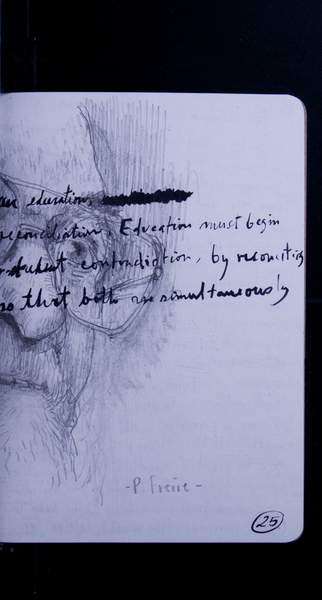 education,
reconciliation. Education must begin
student contradiction, by reconciling
so that both are simultaneously
- P. Freire -
25